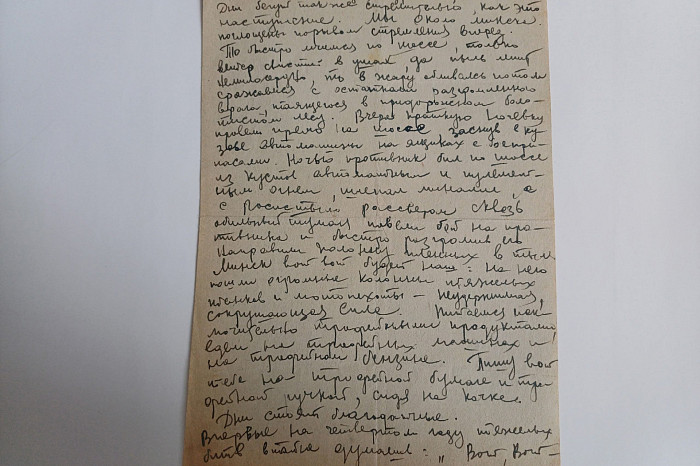 Дни бегут так же стремительно, как это
наступление. Мы около Минска.
поглощены порывом стремления вперед.
То быстро мчимся по шоссе, только
ветер свистит в ушах, да пыль летит
немилосердно, то в жару обливаясь потом
сражаемся с остатками разгромленного
врага, таящегося в придорожном боло-
тистом лесу. Вчера краткую ночевку
провели прямо на шоссе заснув в ку
зове автомашины на ящиках с боепри-
пасами. Ночью противник бил по шоссе
из кустов автоматным и пулемет-
ным огнем, шлепал минами, а
с росистым рассветом сквозь
обильный туман повели бой на про-
тивника и быстро разгромив его
направили колонну пленных в тыл.
Минск вот вот будет наш: на него
пошли огромные колонны тяжелых
танков и мотопехоты – неудержимая,
сокрушающая сила. Питаемся иск-
лючительно трофейными продуктами,
едем на трофейных машинах и
на трофейном бензине. Пишу вот
тебе на трофейной бумаге и тро-
фейной ручкой, сидя на кочке.
Дни стоят благодатные.
Впервые на четвертом году тяжелых
битв в тайне думаешь: „ Вот, Вот-